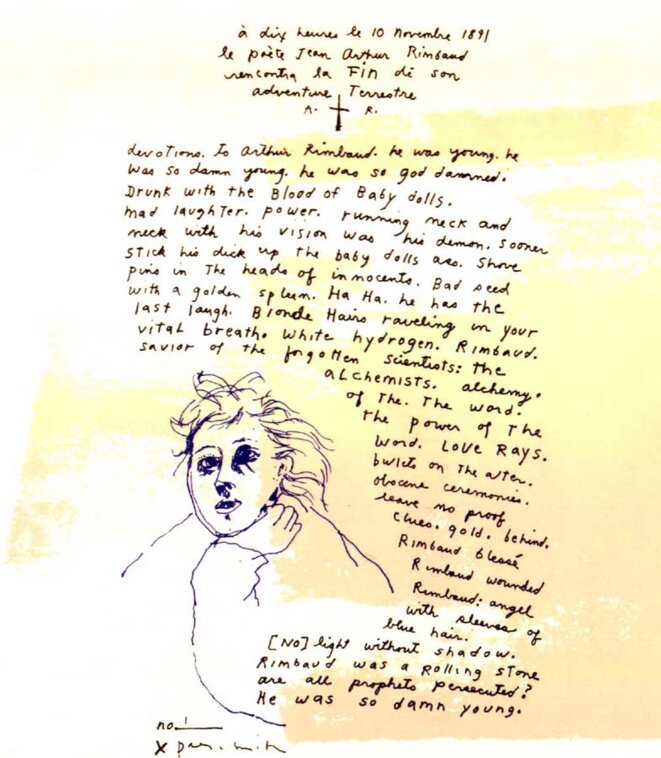 à dix heures le 10 Novembre 1891
le poète Jean Arthur Rimbaud
rencontra la FIN de son
adventure Terrestre
A. R.
devotions. To Arthur Rimbaud. he was young. he
was so damn young. he was so god damned.
Drunk with the Blood of Baby dolls.
mad laughter. power. running neck and
neck with his vision was his demon. sooner
stick his dick up the baby dolls ass. Shove
pins in The heads of innocents. Bad seed
with a golden spleen. Ha Ha. he has the
last laugh. Blonde Hairs raveling in your
vital breath. white hydrogen. Rimbaud.
savior of the forgotten scientists: the
aLchemists. alchemy.
of The. The word.
the power of The
word. LOVE RAYS.
bullets on The alter.
obscene ceremonies.
leave no proof
clues. gold. behind.
Rimbaud blessé
Rimbaud wounded
Rimbaud: angel
with sleeves of
blue hair.
[NO] light without shadow.
Rimbaud was a Rolling stone
are all prophets persecuted?
He was so damn young.
no. 1
X smith